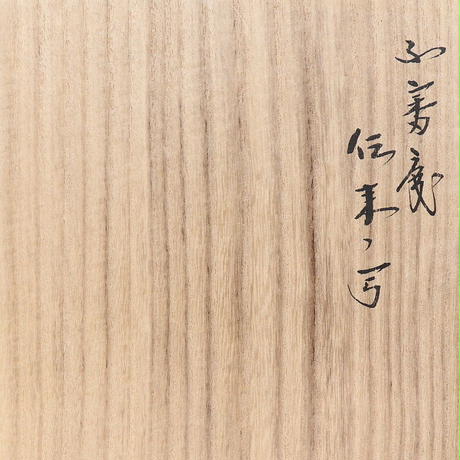 不審庵
伝来ノ写